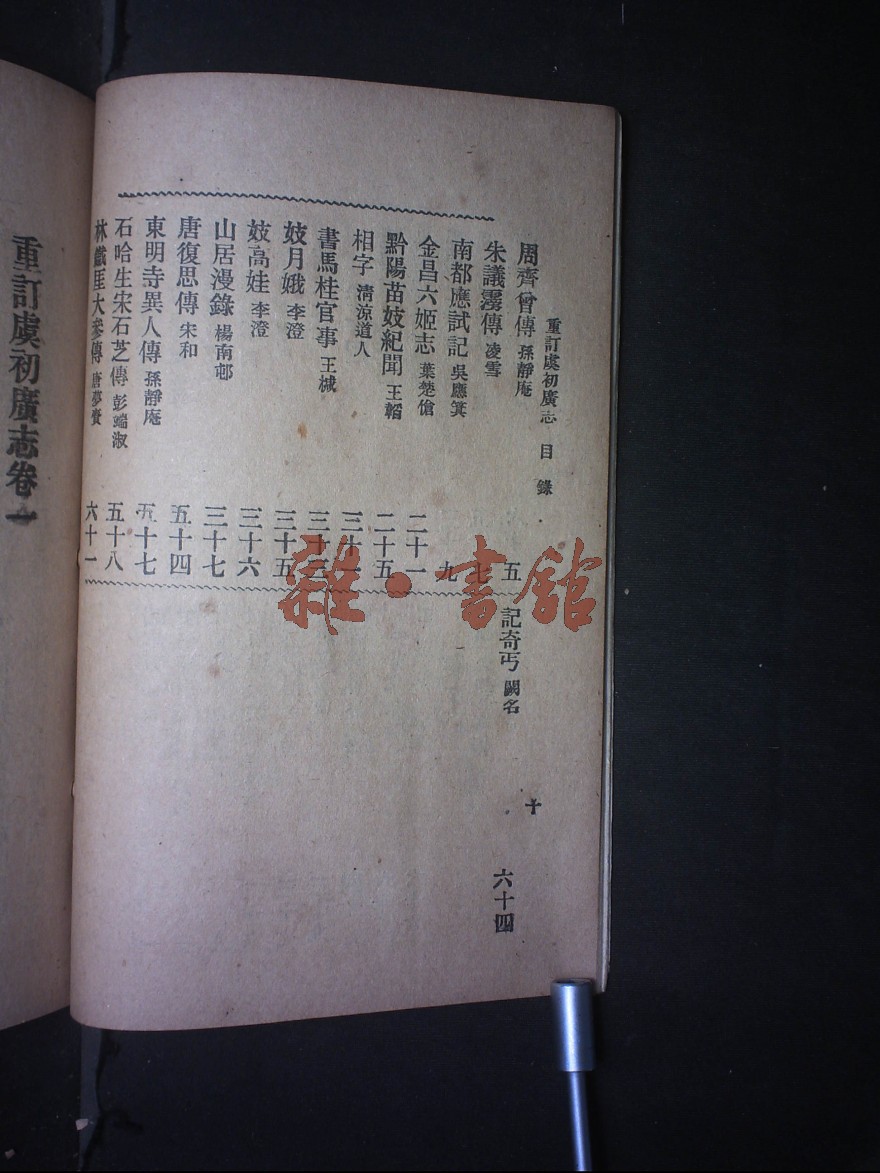 重訂虞初廣志 目錄 十
周齊曾傳 孫靜庵 五
朱議霶傳 凌雪 七
南都應試記 吳應箕 九
金昌六姬志 葉楚傖 二十一
黔陽苗妓紀聞 王韜 二十五
相字 清涼道人 三十一
書馬桂官事 王棫
妓月娥 李澄 三十五
妓高娃 李澄 三十六
山居漫錄 楊南邨 三十七
唐復思傳 宋和 五十四
東明寺異人傳 孫靜庵 五十七
石哈生宋石芝傳 彭端淑 五十八
林鐵崖大參傳 唐夢賚 六十一
記奇丐 闕名 六十四
重訂虞初廣志卷一
雜·書館